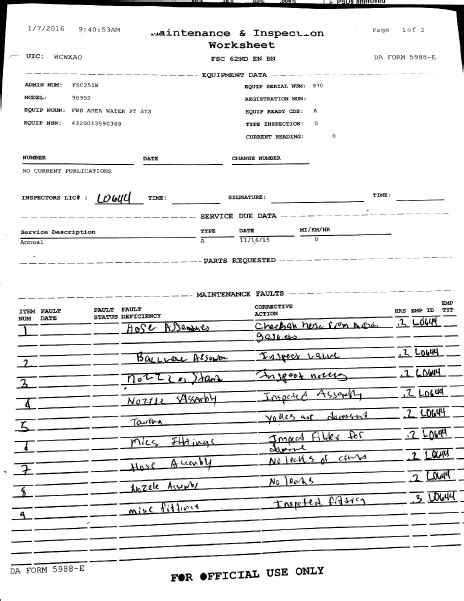 1/7/2016 9:40:53AM
Maintenance & Inspection
Page 1 of 2
Worksheet
UIC: WCWXAO
FSC 62ND EN BN
DA FORM 5988-E
EQUIPMENT DATA
ADMIN NUM: FSC251W
EQUIP SERIAL NUM: 970
MODEL: 90952
REGISTRATION NUM:
EQUIP NOUN: FWD AREA WATER PT SYS
EQUIP READY CDE: A
EQUIP NSN: 4320013590369
TYPE INSPECTION: D
CURRENT READING: 0
NUMBER DATE CHANGE NUMBER
NO CURRENT PUBLICATIONS
INSPECTORS LIC# : LO644 TIME: SIGNATURE: TIME:
SERVICE DUE DATA
Service Description TYPE DATE MI/KM/HR
Annual A 11/16/15 0
PARTS REQUESTED
MAINTENANCE FAULTS
ITEM NUM FAULT DATE FAULT STATUS FAULT DEFICIENCY CORRECTIVE ACTION HRS EMP ID EMP TYP
1 Hose .2 LO644
2 Inspect valve .2 LO644
3 Inspect .2 LO644
4 Nozzle Assembly Inspected Assembly .2 LO644
5 .2 LO644
6 Misc fittings Inspect for .2 LO644
7 Hose Assembly No leaks or .2 LO644
8 Nozzle Assembly No leaks .2 LO644
9 misc fittings Inspected fitting .3 LO644
DA FORM 5988-E
FOR OFFICIAL USE ONLY